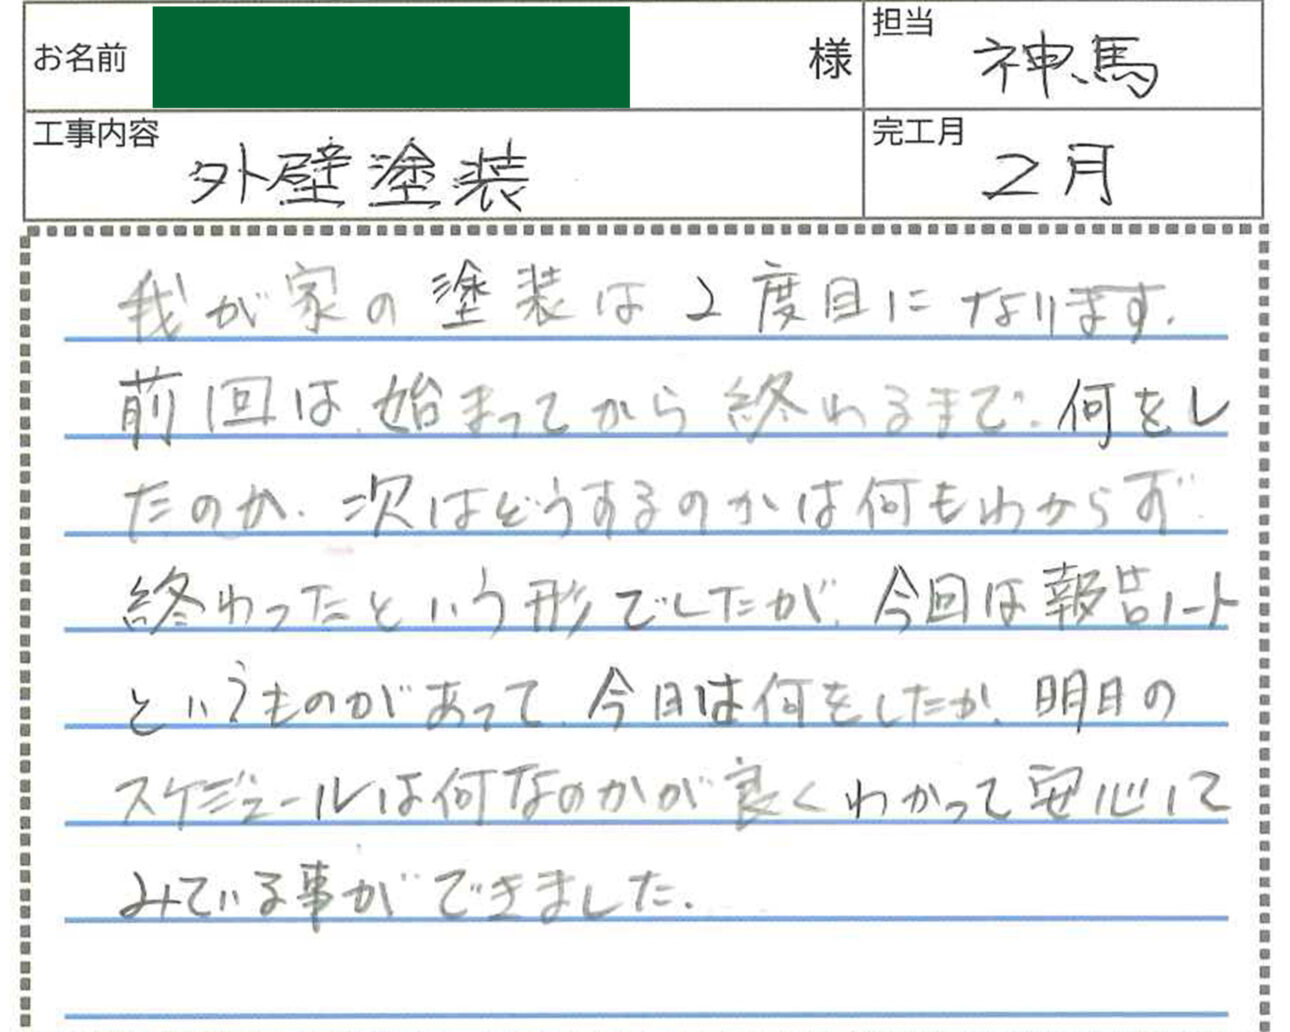 お名前 様
担当 神馬
工事内容 外壁塗装
完工月 2月
我が家の塗装は2度目になります.
前回は、始まってから終わるまで、何をし
たのか、次はどうするのかは何もわからず
終わったという形でしたが、今回は報告ノート
というものがあって、今日は何をしたか、明日の
スケジュールは何なのかが良くわかって安心して
みている事ができました.